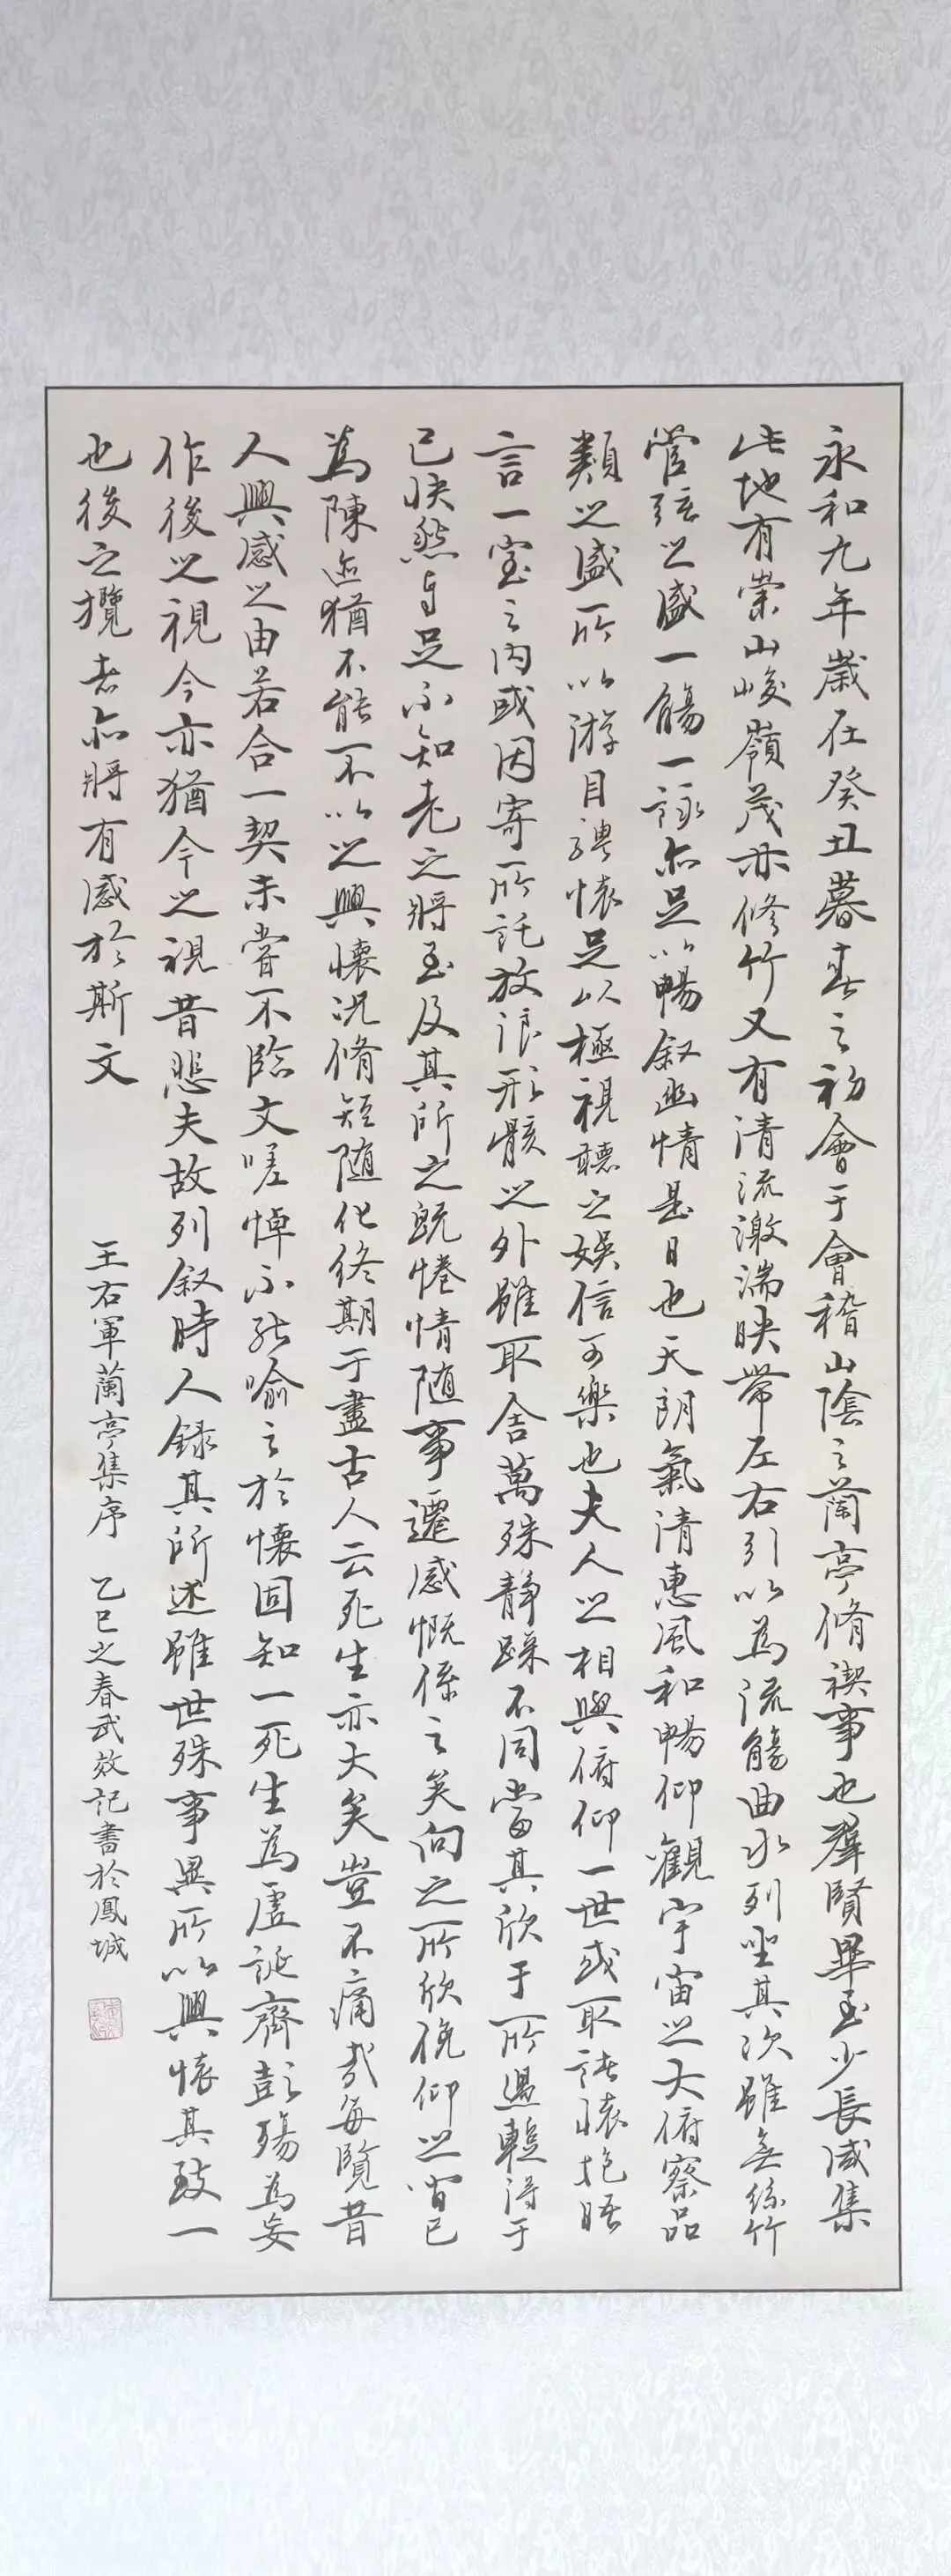 永和九年歲在癸丑暮春之初會于會稽山陰之蘭亭脩禊事也羣賢畢至少長咸集
此地有崇山峻嶺茂林修竹又有清流激湍映帶左右引以為流觴曲水列坐其次雖無絲竹
管弦之盛一觴一詠亦足以暢叙幽情是日也天朗氣清惠風和暢仰觀宇宙之大俯察品
類之盛所以游目騁懷足以極視聽之娛信可樂也夫人之相與俯仰一世或取諸懷抱晤
言一室之內或因寄所託放浪形骸之外雖取舍萬殊靜躁不同當其欣于所遇輒得于
己快然自足不知老之將至及其所之既惓情隨事遷感慨係之矣向之所欣俛仰之間已
為陳迹猶不能不以之興懷況脩短隨化終期于盡古人云死生亦大矣豈不痛哉每覽昔
人興感之由若合一契未嘗不臨文嗟悼不能喻之於懷固知一死生為虛誕齊彭殤為妄
作後之視今亦猶今之視昔悲夫故列叙時人錄其所述雖世殊事異所以興懷其致一
也後之攬者亦將有感於斯文
王右軍蘭亭集序 乙巳之春武效記書於鳳城